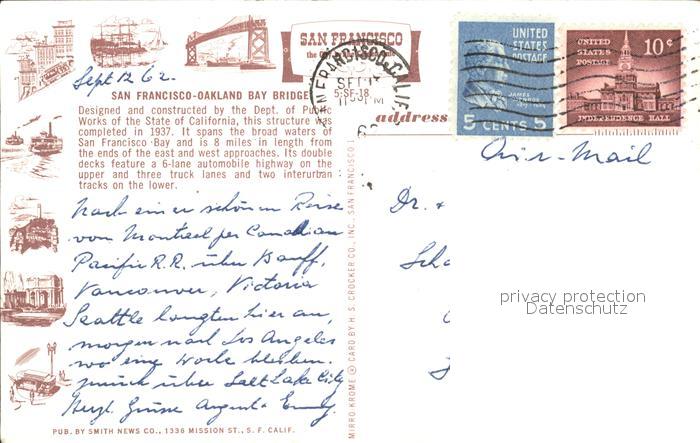 SAN FRANCISCO
Sept 12 62.
SAN FRANCISCO-OAKLAND BAY BRIDGE
Designed and constructed by the Dept. of Public
Works of the State of California, this structure was
completed in 1937. It spans the broad waters of
San Francisco Bay and is 8 miles in length from
the ends of the east and west approaches. Its double
decks feature a 6-lane automobile highway on the
upper and three truck lanes and two interurban
tracks on the lower.
Nach einer schönen Reise
von Montreal per Canadian
Pacific R.R. über Banff,
Vancouver, Victoria
Seattle langten hier an,
morgen nach Los Angeles
wo eine Woche bleiben.
zurück über Salt Lake City
Herzl. Grüsse August + Emmy.
PUB. BY SMITH NEWS CO., 1336 MISSION ST., S. F. CALIF.
MIRRO-KROME ® CARD BY H. S. CROCKER CO., INC., SAN FRANCISCO 1
SAN FRANCISCO, CALIF.
SEP
PM
address
UNITED
STATES
POSTAGE
JAMES
MONROE
5 CENTS 5
UNITED
STATES
POSTAGE
10¢
INDEPENDENCE HALL
Air-Mail
Dr. +
privacy protection
Datenschutz